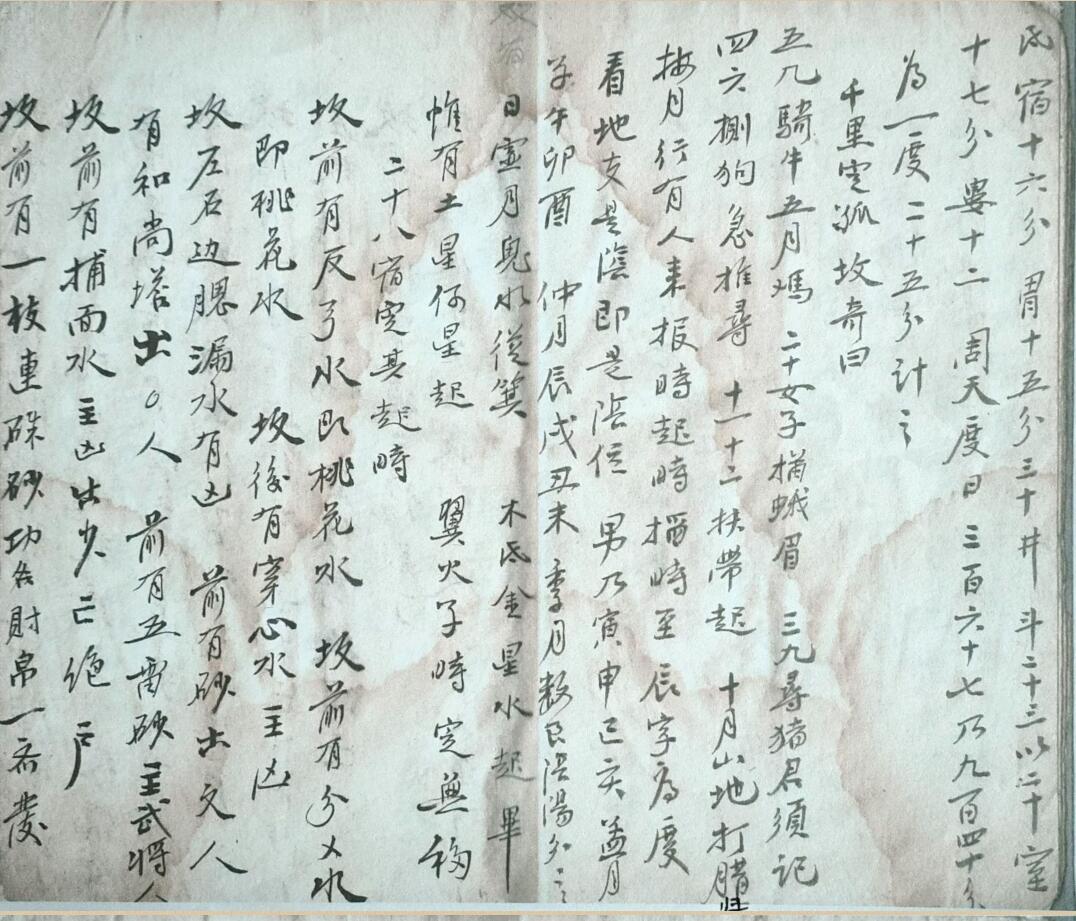 氐宿十六分 胃十五分三十井 斗二十三以二十室
十七分婁十二 周天度日三百六十七乃九百四十分
為一度二十五分计之
千里定派坟奇曰
五八騎牛五月馮 二十女子描蛾眉 三九尋猪君須记
四六捌狗急推尋 十一十二扶帶起 十月山地打腊
按月行有人来报時起時揺時至辰字為度
看地支是陰即是陰位 男乃寅申巳亥孟月
子午卯酉 仲月辰戌丑未季月数艮陰陽分之
日虚月鬼水從箕 木氐金星水起畢
惟有土星何星起 翼火子時定無移
二十八宿定其起時
坟前有反弓水即桃花水 坟前有分乂水
即桃花水 坟後有穿心水主凶
坟左右边腮漏水有凶 前有砂出文人
有和尚塔出○人 前有五雷砂主武将人
坟前有捕面水主凶出少亡绝户
坟前有一枝連硃砂功名財帛一齐發